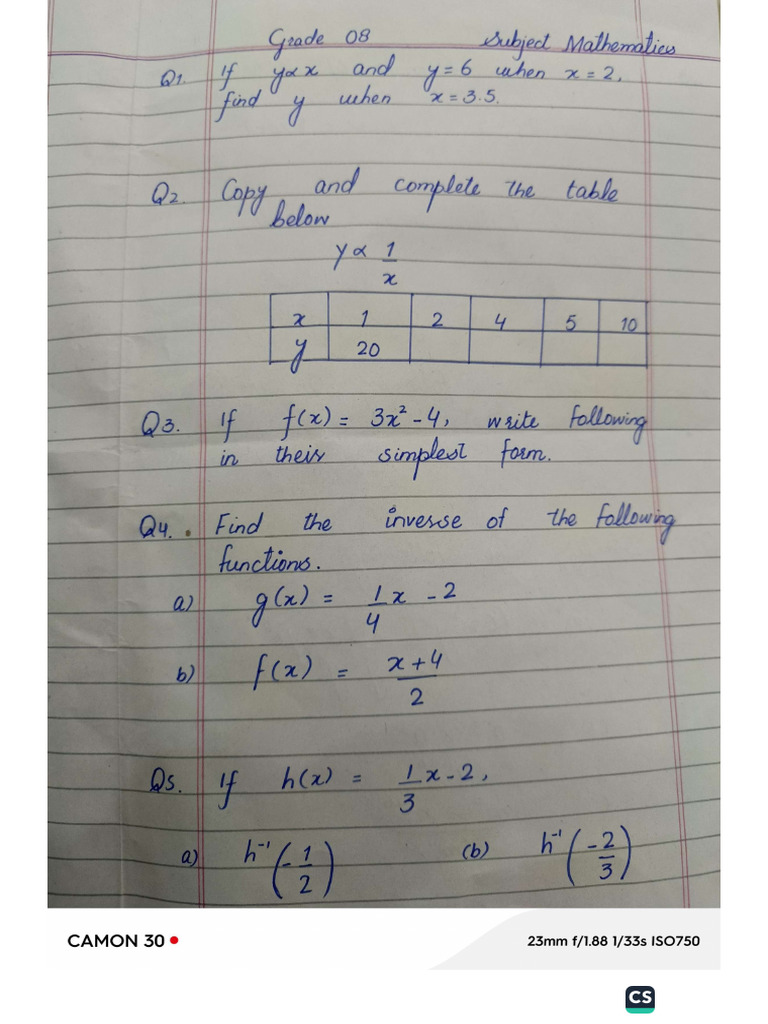 Grade 08 Subject Mathematics
Q1. If y∝x and y=6 when x=2,
find y when x=3.5.
Q2. Copy and complete the table
below
y ∝ 1/x
x 1 2 4 5 10
y 20
Q3. If f(x) = 3x²-4, write following
in their simplest form.
Q4. Find the inverse of the following
functions.
a) g(x) = 1/4 x - 2
b) f(x) = x+4/2
Q5. If h(x) = 1/3 x - 2,
a) h⁻¹(-1/2) (b) h⁻¹(-2/3)
CAMON 30 23mm f/1.88 1/33s ISO750
CS